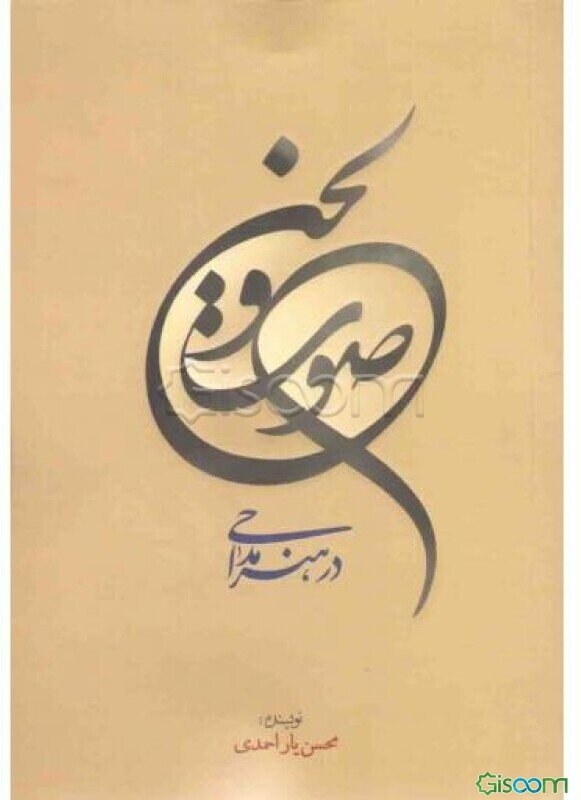 صوت و لحن
در هنر مداحی
نویسنده:
محسن یاراحمدی
Gisoom
Gisoom